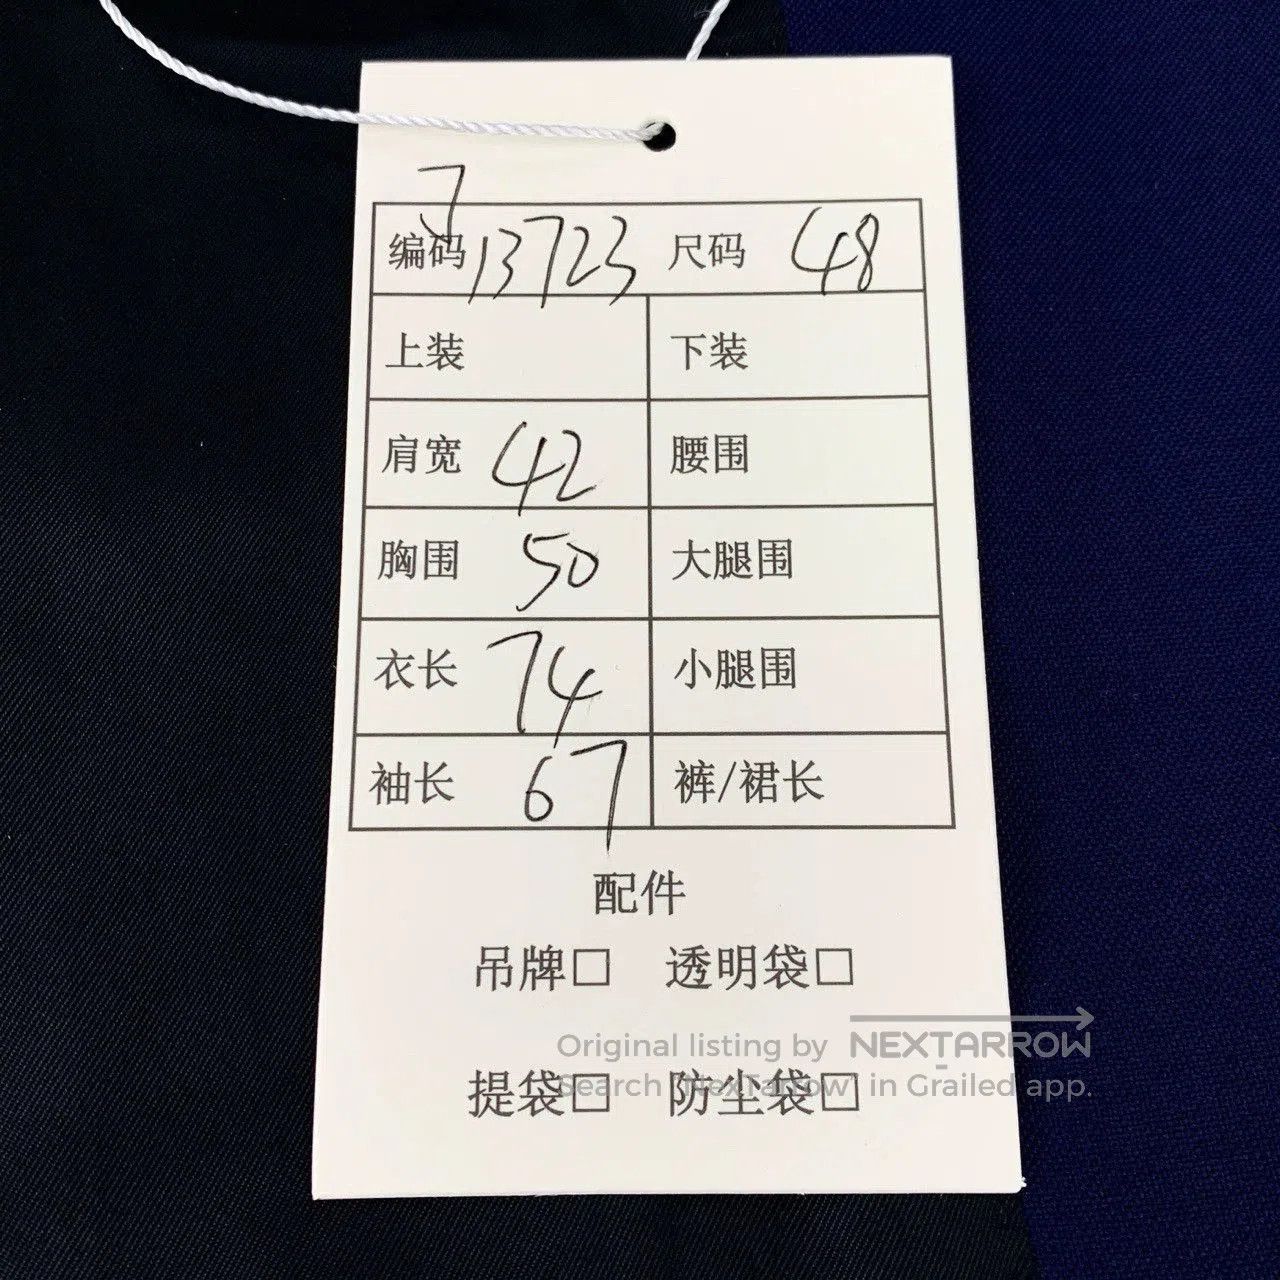 J
编码 13723 尺码 48
上装 下装
肩宽 42 腰围
胸围 50 大腿围
衣长 74 小腿围
袖长 67 裤/裙长
配件
吊牌□ 透明袋□
Original listing by NEXTARROW
提袋□ 防尘袋□
Search "NexTarrow" in Grailed app.